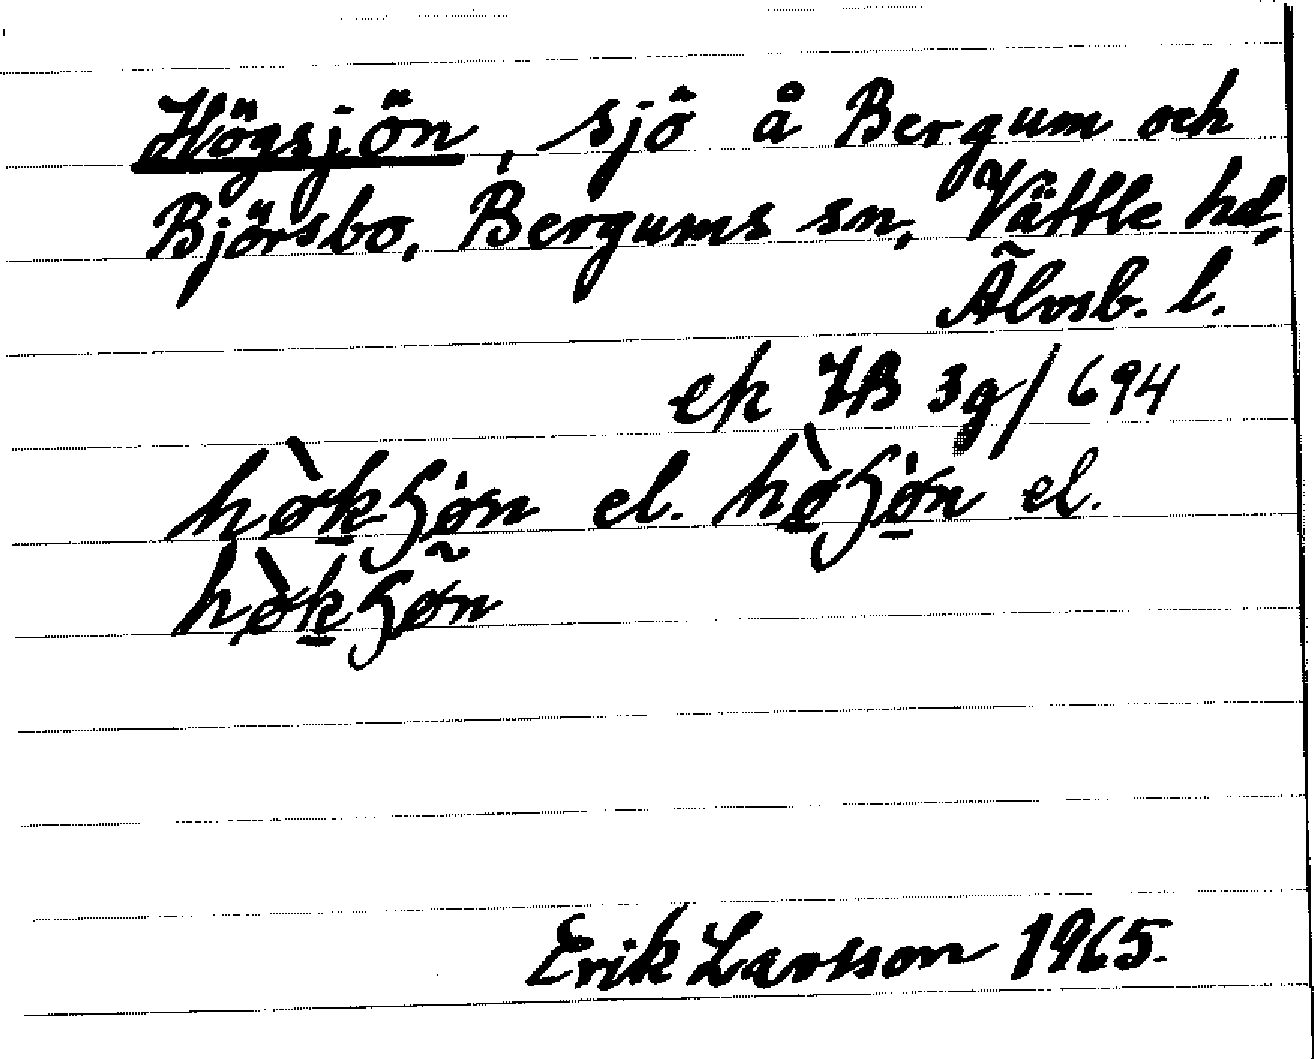 Högsjön, sjö å Bergum och
Björsbo, Bergums sn, Vättle hd,
Älvsb. l.
ek 7B 3g/694
el. el.
Erik Larsson 1965.